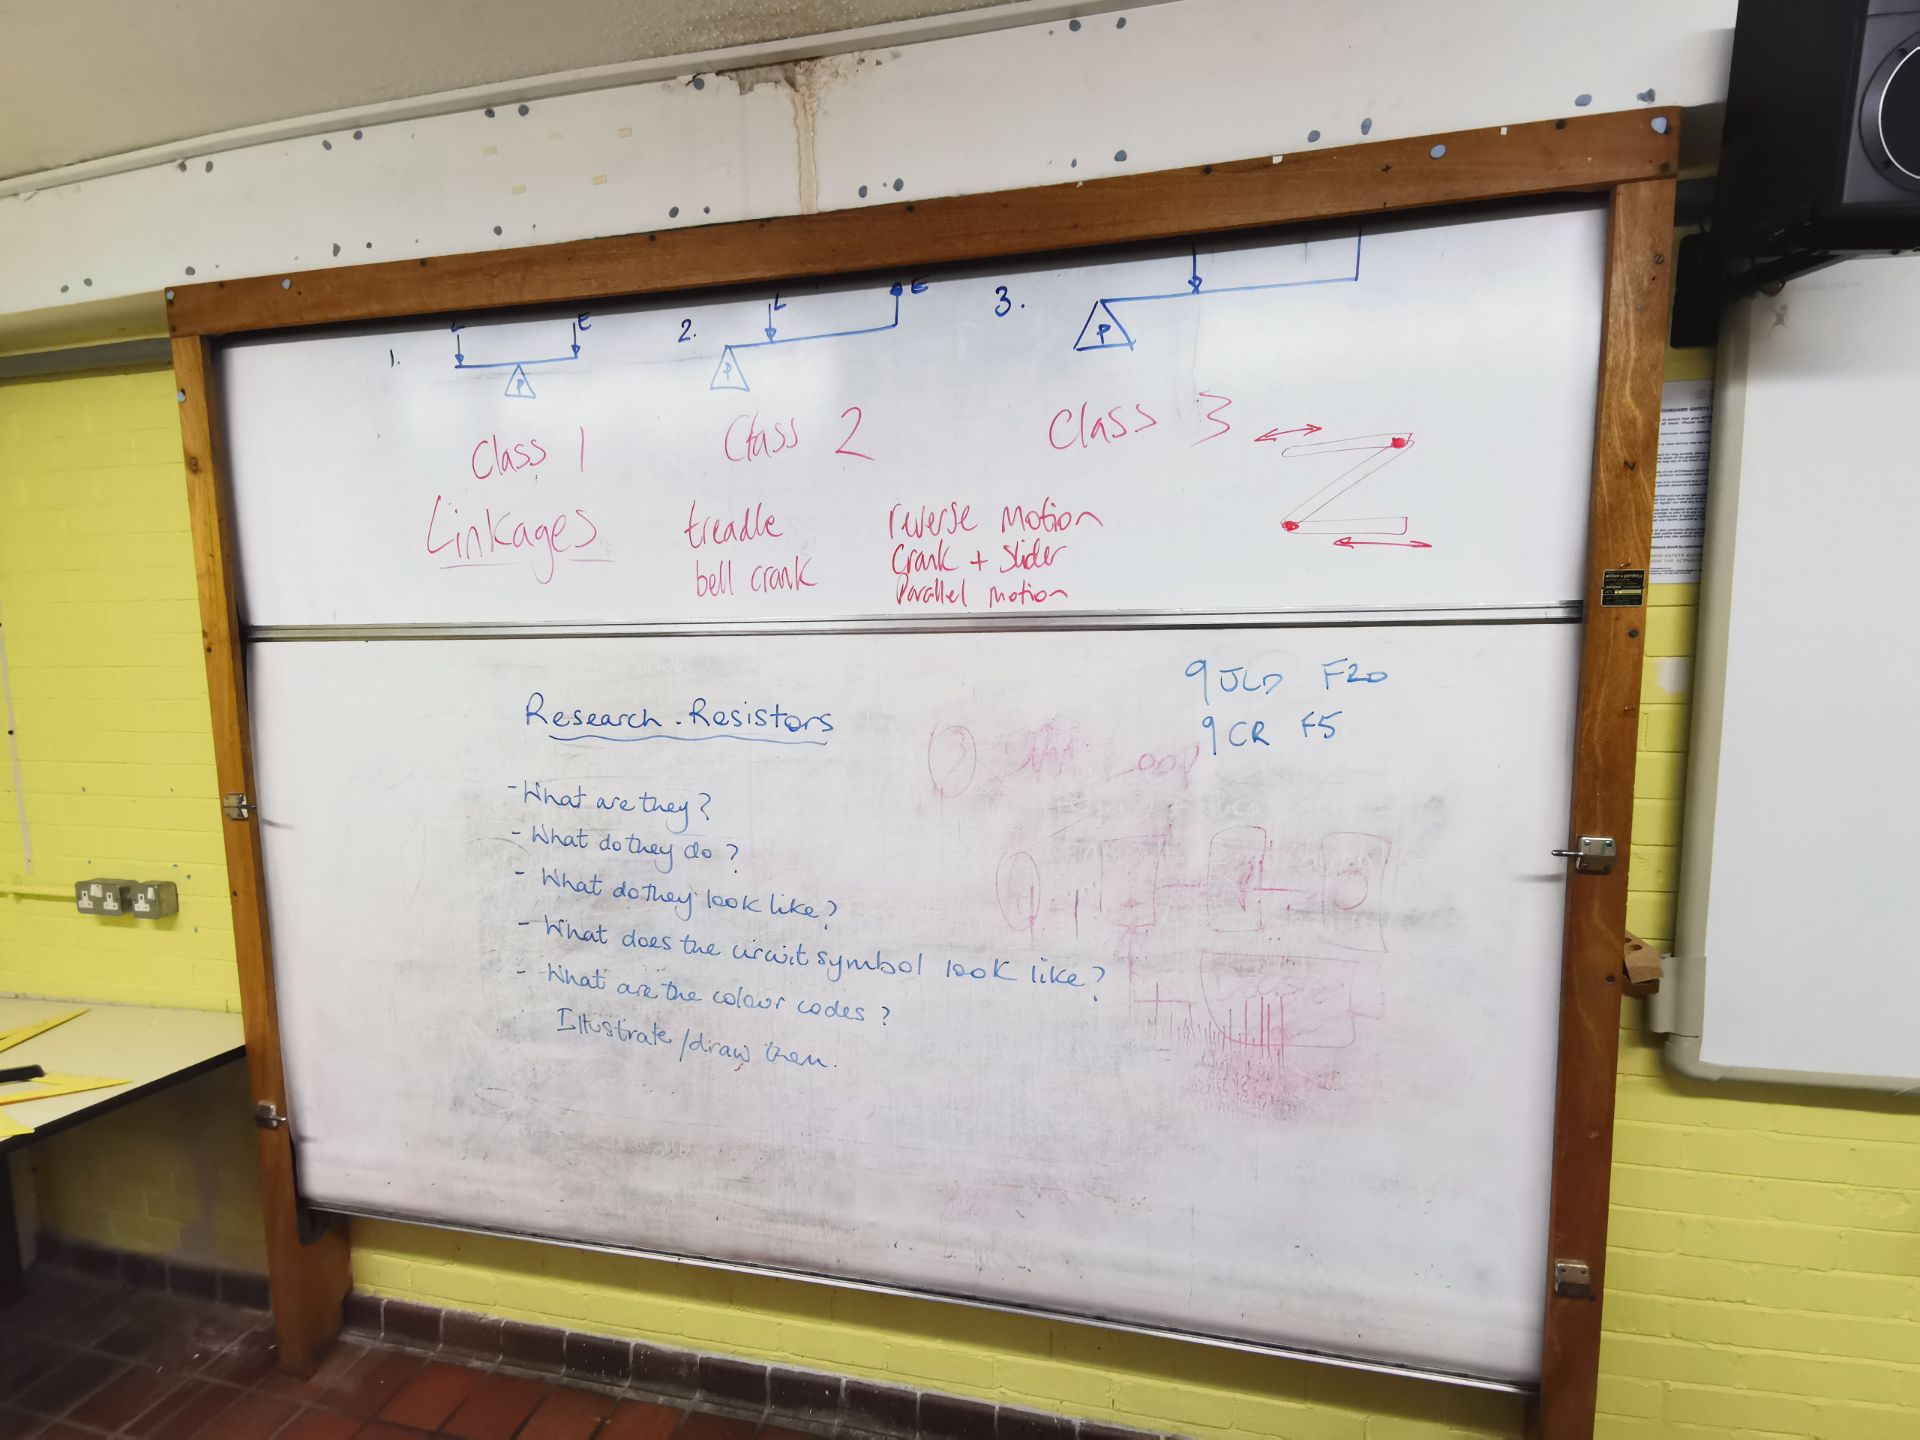 1.
L
E
P
2.
L
E
P
3.
P
Class 1
Class 2
Class 3
Linkages
treadle
bell crank
reverse motion
Crank + Slider
Parallel motion
9 JLD F20
9 CR F5
Research. Resistors
- What are they?
- What do they do?
- What do they look like?
- What does the circuit symbol look like?
- What are the colour codes?
Illustrate/draw them.